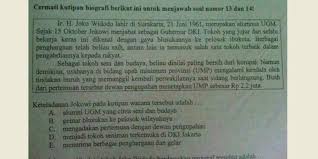 Cermati kutipan biografi berikut ini untuk menjawab soal nomor 13 dan 14!
Ir. H. Joko Widodo lahir di Surakarta, 21 Juni 1961, merupakan alumnus UGM.
Sejak 15 Oktober Jokowi menjabat sebagai Gubernur DKI. Tokoh yang jujur dan selalu
bekerja keras ini dikenal dengan gaya blusukannya ke pelosok ibukota. Berbagai
penghargaan telah beliau raih, antara lain ia termasuk salah satu tokoh terbaik dalam
pengabdiannya kepada rakyat.
Sebagai tokoh seni dan budaya, beliau dinilai paling bersih dari korupsi. Namun
demikian, usahanya di bidang upah minimum provinsi (UMP) mengalami kendala oleh
tindakan buruh yang memanggil kembali perwakilannya saat sidang berlangsung. Buah
dari pertemuan tersebut dewan pengupahan menetapkan UMP sebesar Rp 2,2 juta.
Keteladanan Jokowi pada kutipan wacana tersebut adalah ....
A. alumni UGM yang cinta seni dan budaya
B. gemar blusukan ke pelosok wilayahnya
C. mengadakan pertemuan dengan dewan pengupahan
D. menjadi tokoh seniman terkemuka di DKI Jakarta
E. menerima berbagai penghargaan dan gelar